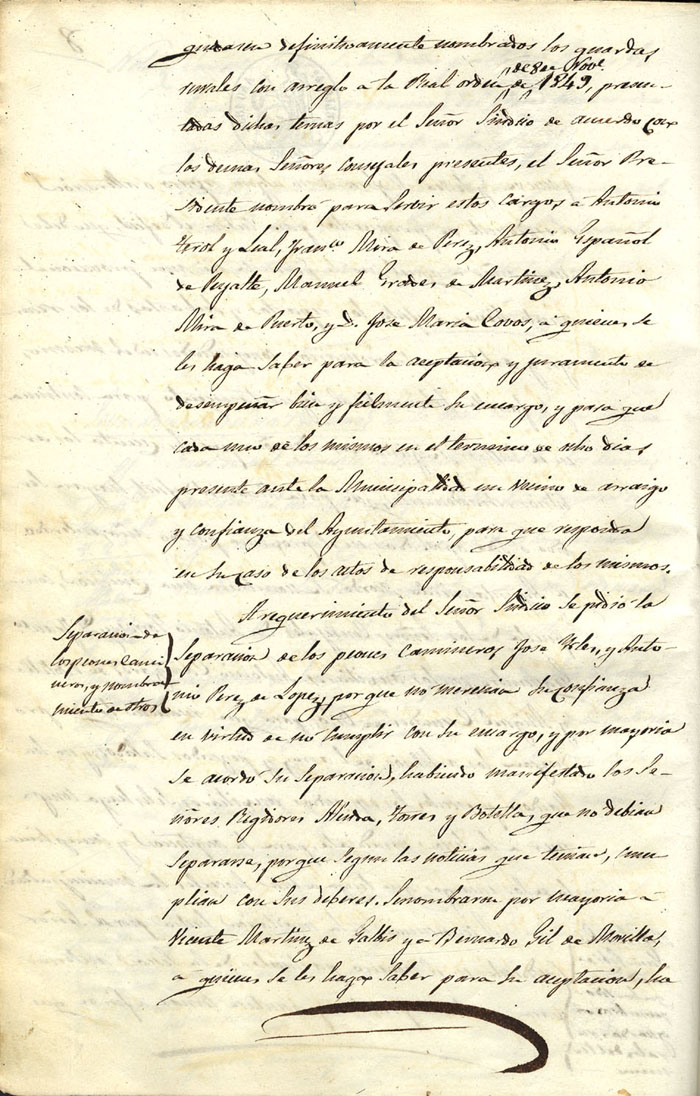 quedasen definitivamente nombrados los guardas
rurales con arreglo a la Real orden de 8 de Nove. de 1849, presen-
tadas dichas ternas por el Señor Sindico de acuerdo con
los demas Señores Consejales presentes, el Señor Pre-
sidente nombró para servir estos cargos, a Antonio
Verol y Lial, Franco. Mira de Perez, Antonio Español
de Peyalte, Manuel Grades de Martinez, Antonio
Mira de Puerto, y D. Jose Maria Covos, a quienes se
les haga saber para la aceptacion y juramento de
desempeñar bien y fielmente su encargo, y para que
cada uno de los mismos en el termino de ocho dias
presente ante la Municipalidad un vecino de arraigo
y confianza del Ayuntamiento, para que responda
en su caso de los actos de responsabilidad de los mismos.
A requerimiento del Señor Sindico se pidió la
Separacion de
los peones Cami
neros, y nombra-
miento de otros
separacion de los peones Camineros Jose Yrles, y Anto-
nio Perez de Lopez, por que no merecian su confianza
en virtud de no cumplir con su encargo, y por mayoria
se acordo su separacion, habiendo manifestado los Se-
ñores Regidores Torres y Botella, que no debian
separarse, por que segun las noticias que tenian, cum-
plian con sus deberes. Se nombraron por mayoria a
Vicente Martinez de Galbis y a Bernardo Gil de Morilla,
a quienes se les haga saber para su aceptacion, ha